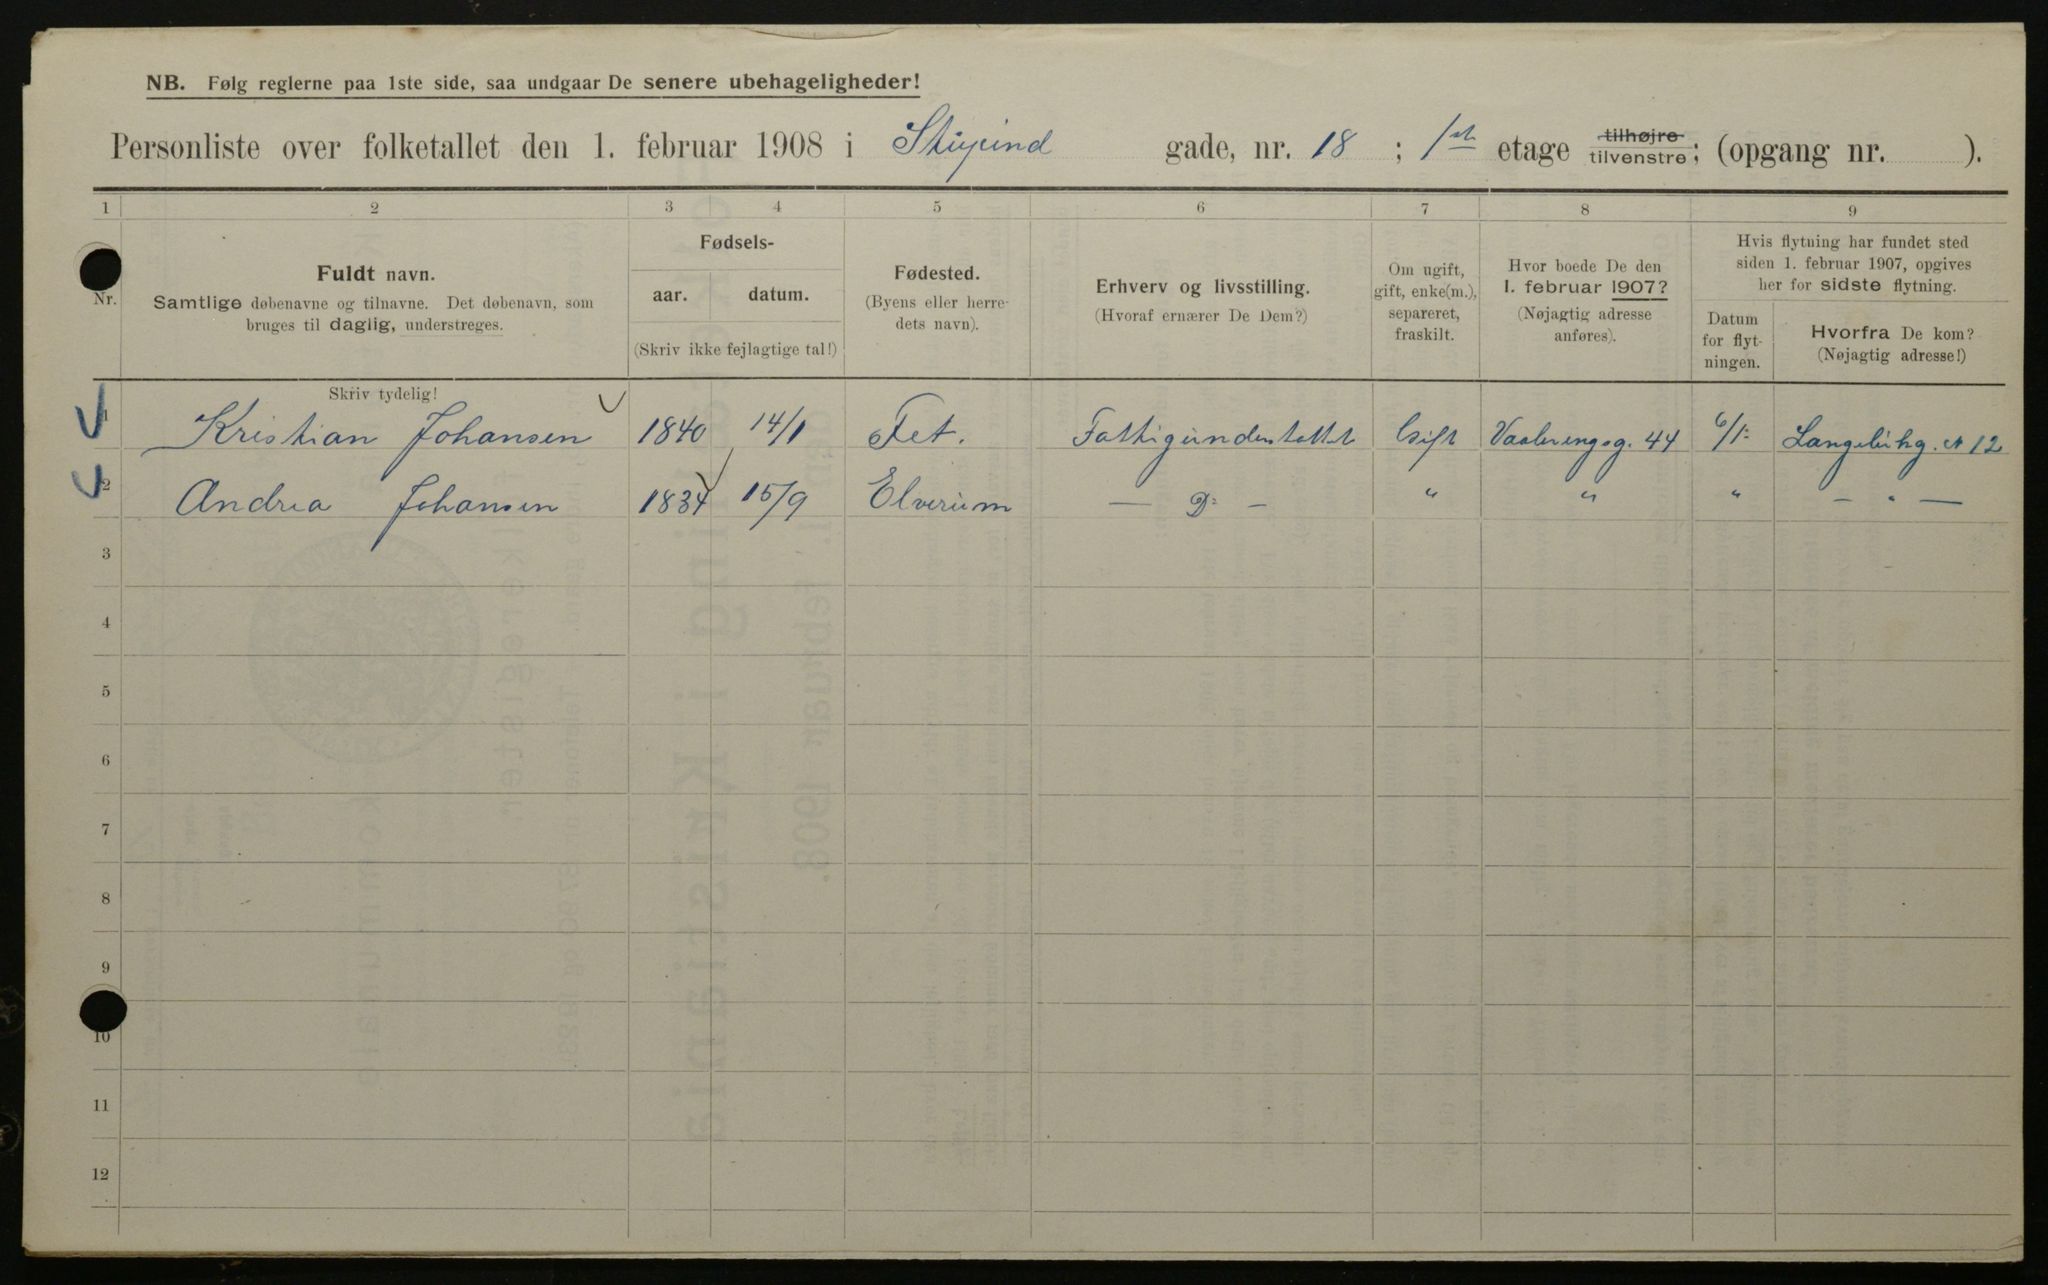 NB. Følg reglerne paa 1ste side, saa undgaar De senere ubehageligheder!
Personliste over folketallet den 1. februar 1908 i Stupind gade, nr. 18 ; 1st etage tilhøjre tilvenstre; (opgang nr. ).
1 2 3 4 5 6 7 8 9
Nr.
Fuldt navn.
Samtlige døbenavne og tilnavne. Det døbenavn, som
bruges til daglig, understreges.
Fødsels-
aar. datum.
(Skriv ikke fejlagtige tal!)
Fødested.
(Byens eller herre-
dets navn).
Erhverv og livsstilling.
(Hvoraf ernærer De Dem?)
Om ugift,
gift, enke(m.),
separeret,
fraskilt.
Hvor boede De den
1. februar 1907?
(Nøjagtig adresse
anføres).
Hvis flytning har fundet sted
siden 1. februar 1907, opgives
her for sidste flytning.
Datum
for flyt-
ningen.
Hvorfra De kom?
(Nøjagtig adresse!)
Skriv tydelig!
1 Kristian Johansen 1840 14/1 Fet. Fattigunderstøttet Gift Vaalerengsg. 44 6/1- 12
2 Andrea Johansen 1834 15/9 Elverum — D: — " " " — " —
3
4
5
6
7
8
9
10
11
12